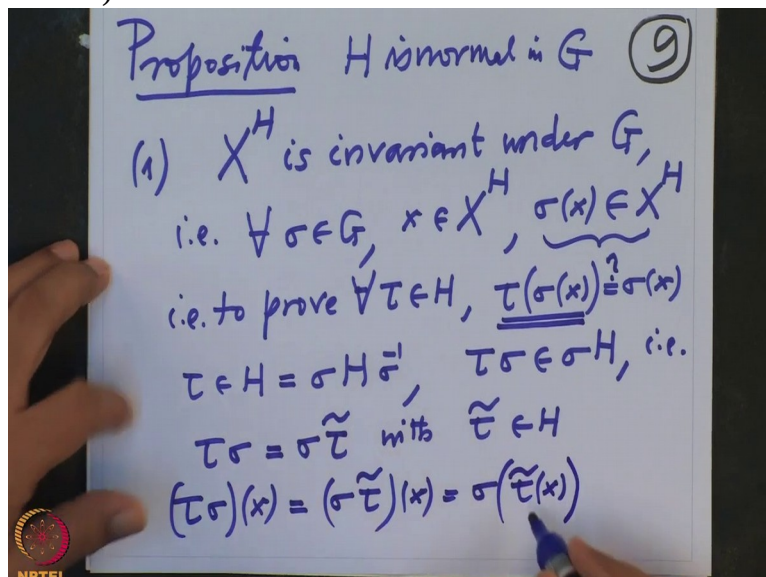 Proposition H is normal in G 9
(1) X^H is invariant under G,
i.e. ∀ σ ∈ G, x ∈ X^H, σ(x) ∈ X^H
i.e. to prove ∀ τ ∈ H, τ(σ(x)) ?= σ(x)
τ ∈ H = σ H σ^-1, τσ ∈ σH, i.e.
τσ = σ τ̃ with τ̃ ∈ H
(τσ)(x) = (σ τ̃)(x) = σ(τ̃(x))
NPTEL